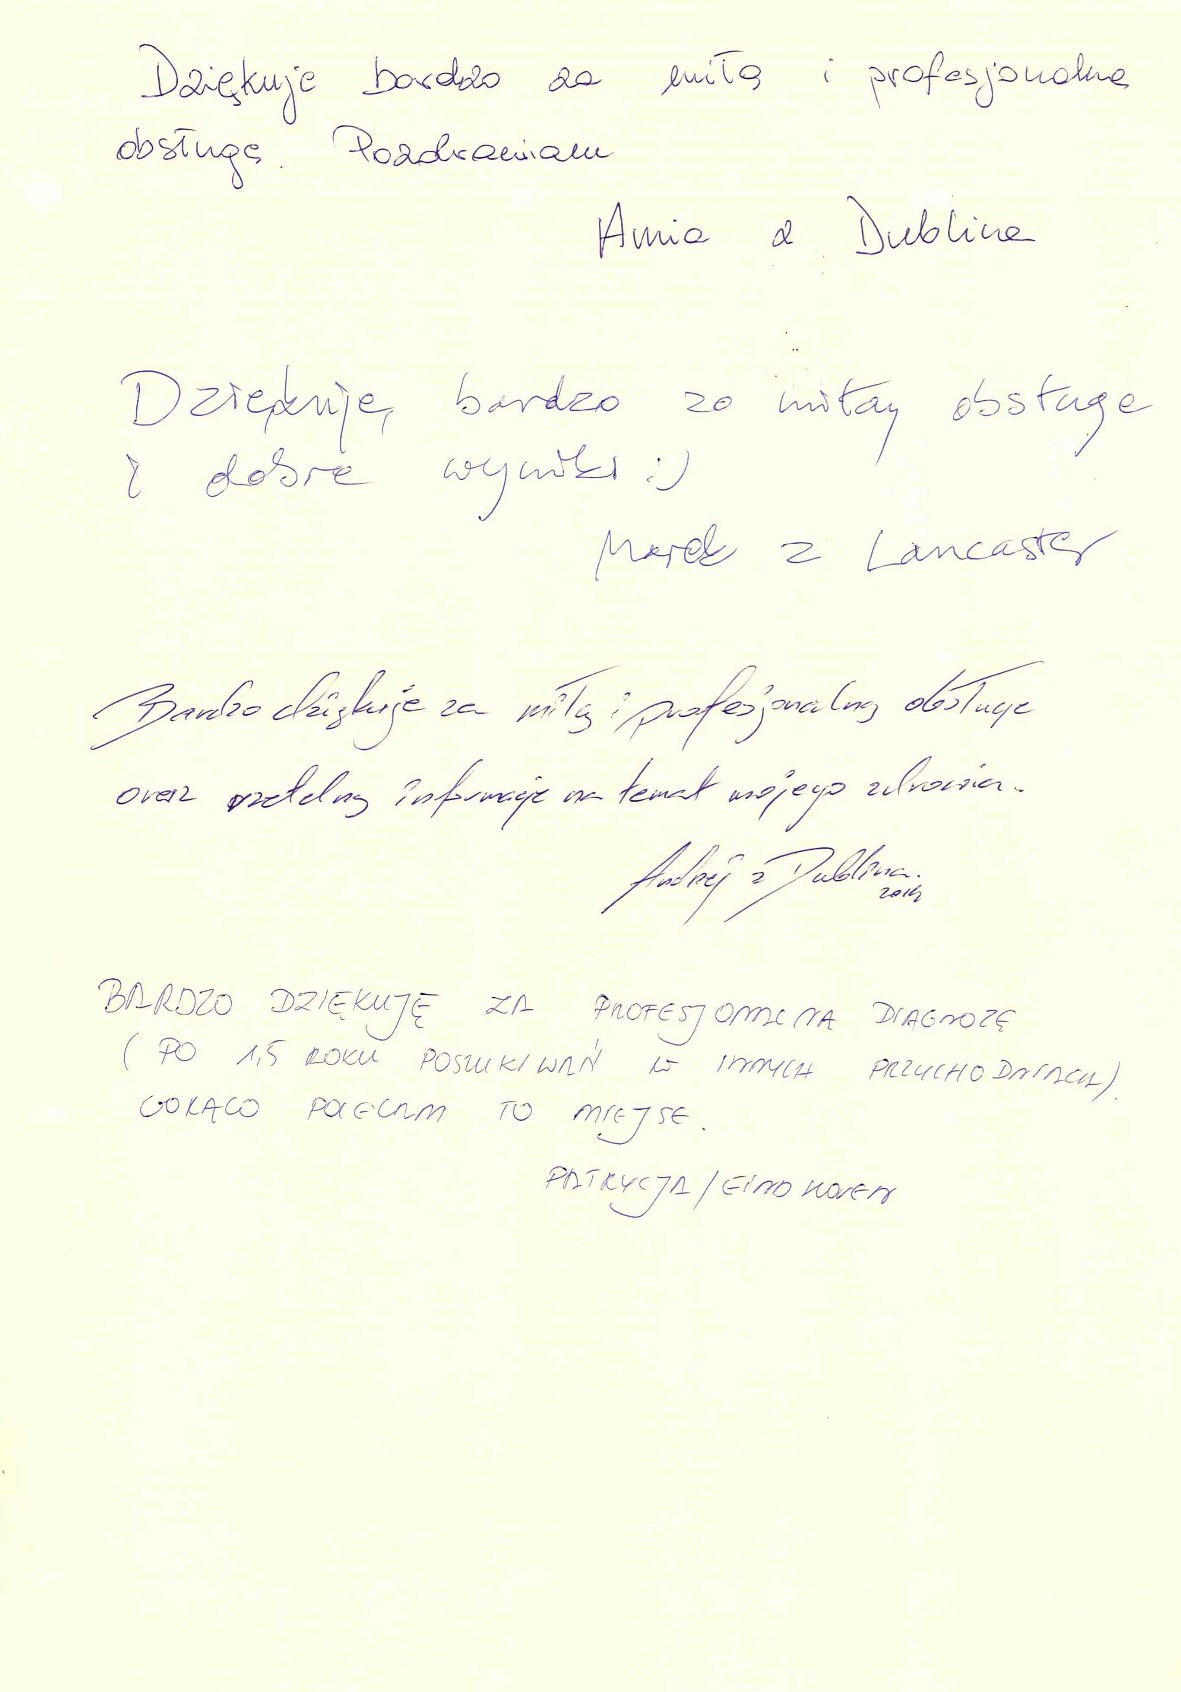 Dziękuje bardzo za miłą i profesjonalną
obsługę. Pozdrawiam
Ania z Dublina
Dziękuję, bardzo za miłą obsługę
i dobre wyniki :)
Marek z Lancaster
Bardzo dziękuje za miłą i profesjonalną obsługę
oraz rzetelną informację na temat mojego zdrowia.
Andrzej z Dublina.
2014
BARDZO DZIĘKUJĘ ZA PROFESJONALNĄ DIAGNOZĘ
(PO 1,5 ROKU POSZUKIWAŃ W INNYCH PRZYCHODNIACH).
GORĄCO POLECAM TO MIEJSE.
PATRYCJA / EINDHOVEN